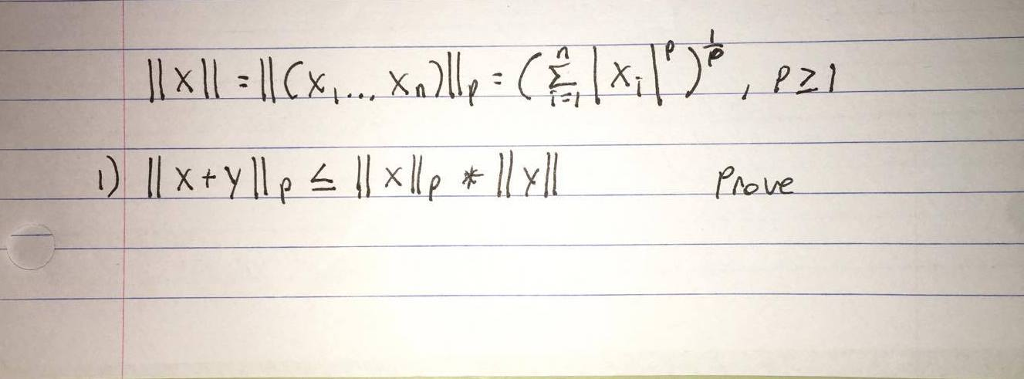 ||x|| = ||(x₁,... xₙ)||ₚ = (∑ⁿᵢ₌₁ |xᵢ|ᵖ)^(1/p), p ≥ 1
1) ||x+y||ₚ ≤ ||x||ₚ * ||y|| Prove